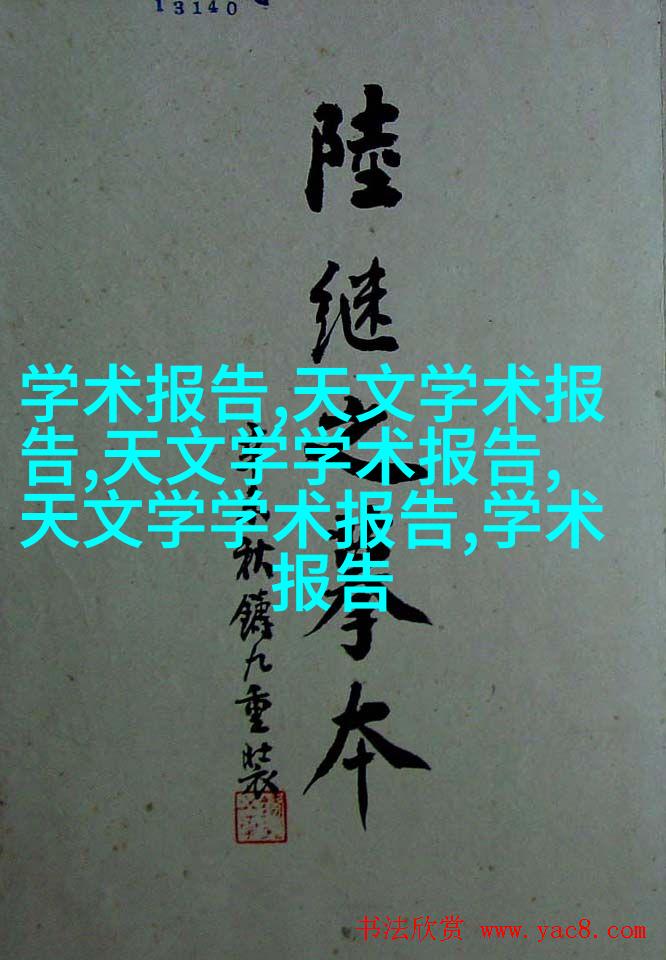 13140
陸继之摹本
秋鑄九重裝
学术报告,天文学术报
告,天文学学术报告,
天文学学术报告,学术
报告
书法欣赏 www.yac8.com